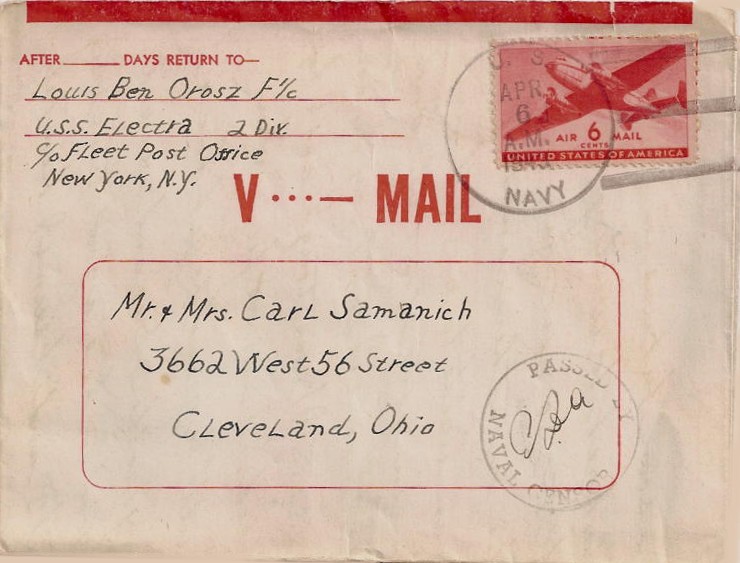 AFTER______ DAYS RETURN TO—
Louis Ben Orosz F1/c
U.S.S. Electra 2 Div.
c/o Fleet Post Office
New York, N.Y.
U. S.
APR
6
A.M.
NAVY
AIR 6 MAIL
CENTS
UNITED STATES OF AMERICA
V ···— MAIL
Mr. & Mrs. Carl Samanich
3662 West 56 Street
Cleveland, Ohio
PASSED BY
NAVAL CENSOR